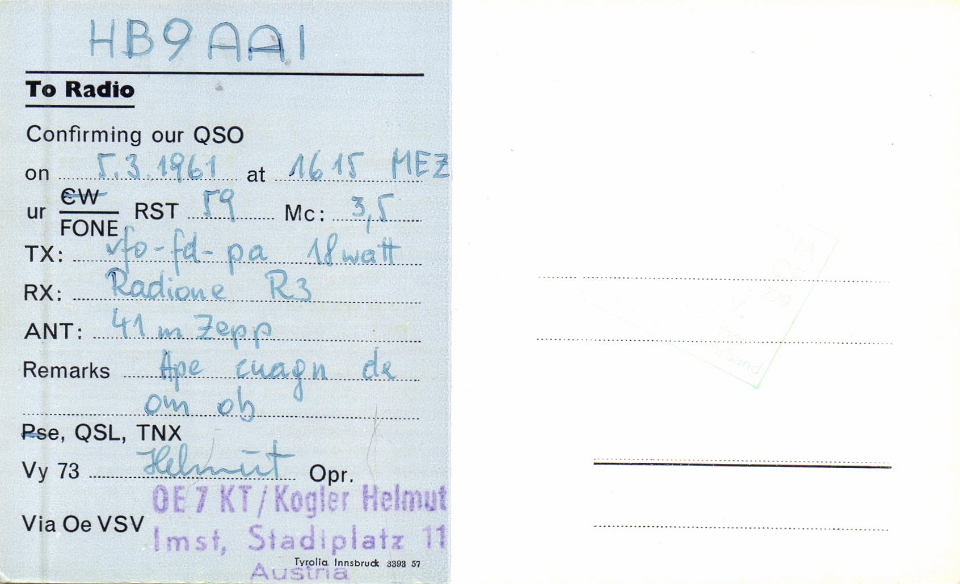 HB9AAI
To Radio
Confirming our QSO
on 5.3.1961 at 1615 MEZ
ur CW/FONE RST 59 Mc: 3,5
TX: vfo-fd-pa 18 watt
RX: Radione R3
ANT: 41 m Zepp
Remarks Ape cuagn de
om ob
Pse, QSL, TNX
Vy 73 Helmut Opr.
Via Oe VSV
OE 7 KT/Kogler Helmut
Imst, Stadlplatz 11
Austria
Tyrolia Innsbruck 3393 57